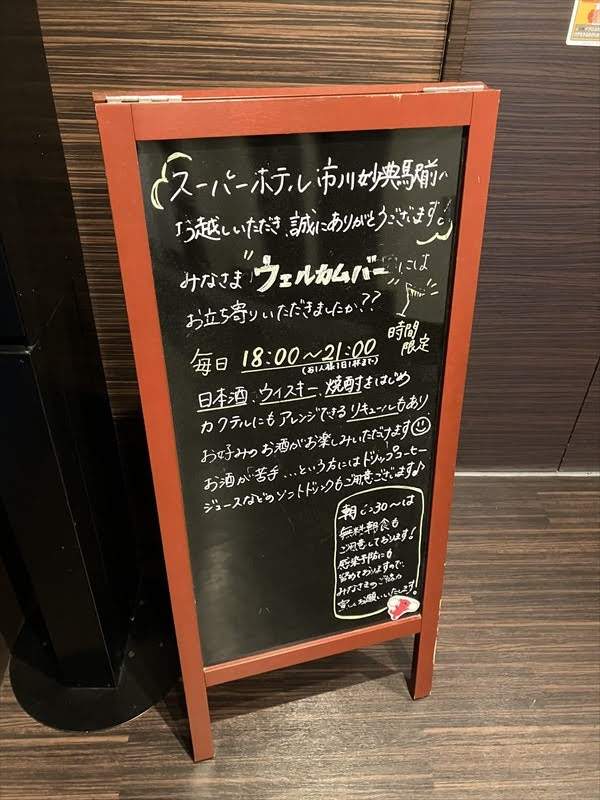 スーパーホテル市川妙典駅前へ
お越しいただき、誠にありがとうございます!
みなさま"ウェルカムバー"には
お立ち寄りいただきましたか??
時間
限定
毎日 18:00〜21:00
(お1人様1日1杯まで)
日本酒、ウィスキー、焼酎をはじめ
カクテルにもアレンジできるリキュールもあり
お好みのお酒がお楽しみいただけます
お酒が「苦手...という方にはドリップコーヒー
ジュースなどのソフトドリンクもご用意ございます♪
朝6:30〜は
無料朝食も
ご用意しております!
感染予防にも
努めておりますので、
みなさまのご協力
宜しくお願いいたします!